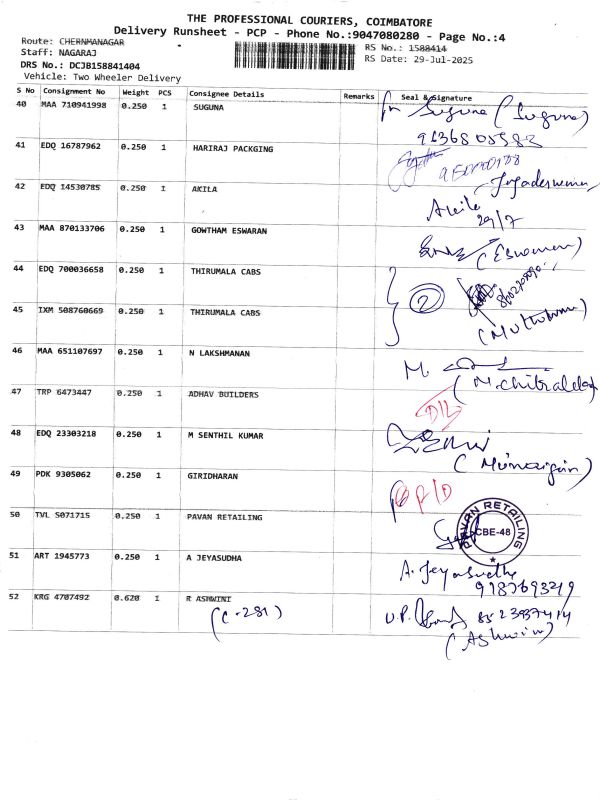 THE PROFESSIONAL COURIERS, COIMBATORE
Delivery Runsheet - PCP - Phone No.:9047080280 - Page No.:4
Route: CHERNMANAGAR
Staff: NAGARAJ
DRS No.: DCJB158841404
Vehicle: Two Wheeler Delivery
RS No.: 1588414
RS Date: 29-Jul-2025
S No Consignment No Weight PCS Consignee Details Remarks Seal & Signature
40 MAA 710941998 0.250 1 SUGUNA Suguna (Suguna)
41 EDQ 16787962 0.250 1 HARIRAJ PACKGING
42 EDQ 14530785 0.250 1 AKILA Akila
29/7
43 MAA 870133706 0.250 1 GOWTHAM ESWARAN (Eswaran)
44 EDQ 700036658 0.250 1 THIRUMALA CABS 2
45 IXM 508760669 0.250 1 THIRUMALA CABS
46 MAA 651107697 0.250 1 N LAKSHMANAN M.
47 TRP 6473447 0.250 1 ADHAV BUILDERS D/L
48 EDQ 23303218 0.250 1 M SENTHIL KUMAR
49 PDK 9305062 0.250 1 GIRIDHARAN
50 TVL 5071715 0.250 1 PAVAN RETAILING PAVAN RETAILING CBE-48
51 ART 1945773 0.250 1 A JEYASUDHA A. Jeyasudha
9787693249
52 KRG 4707492 0.620 1 R ASHWINI U.P. 8523937414
(C-281) (Ashwini)